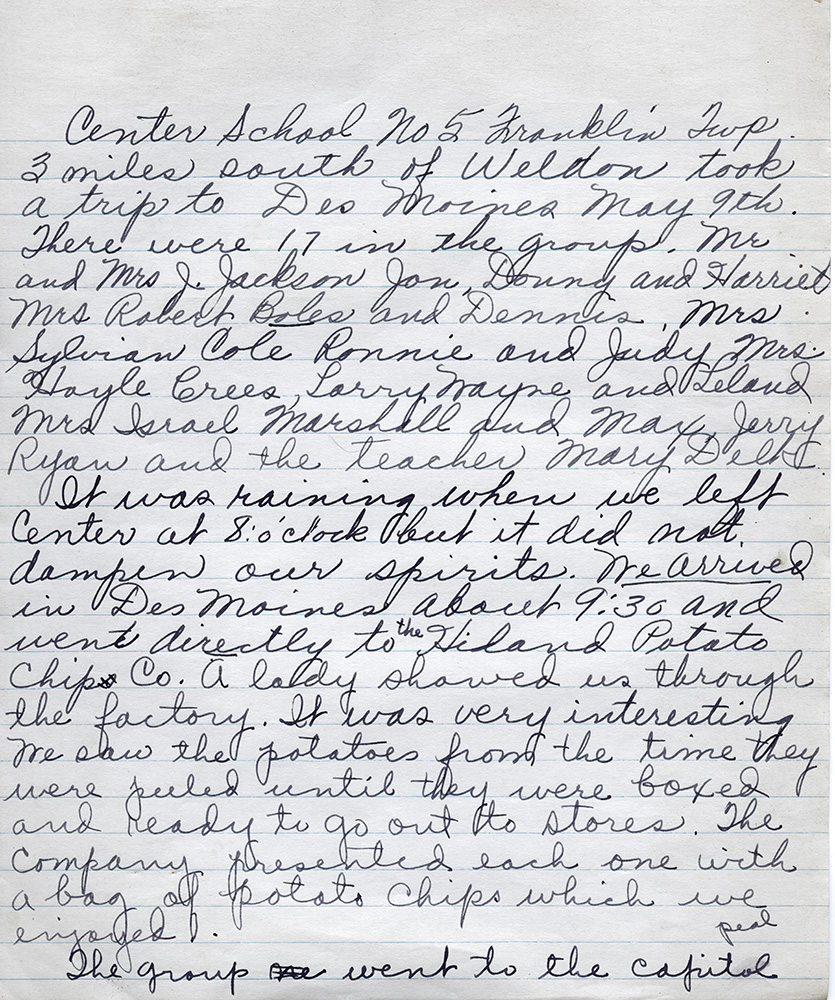 Center School No 5 Franklin Twp.
3 miles south of Weldon took
a trip to Des Moines May 9th.
There were 17 in the group. Mr
and Mrs J. Jackson Jon, Donny and Harriet
Mrs Robert Boles and Dennis, Mrs.
Sylvian Cole Ronnie and Judy Mrs.
Hoyle Crees, Larry Wayne and Leland
Mrs Israel Marshall and Max, Jerry
Ryan and the teacher Mary Delk.
It was raining when we left
Center at 8:o'clock but it did not
dampen our spirits. We arrived
in Des Moines about 9:30 and
went directly to the Hiland Potato
Chip Co. A lady showed us through
the factory. It was very interesting
We saw the potatoes from the time they
were peeled until they were boxed
and ready to go out to stores. The
Company presented each one with
a bag of potato chips which we
enjoyed.
peal
The group went to the capitol